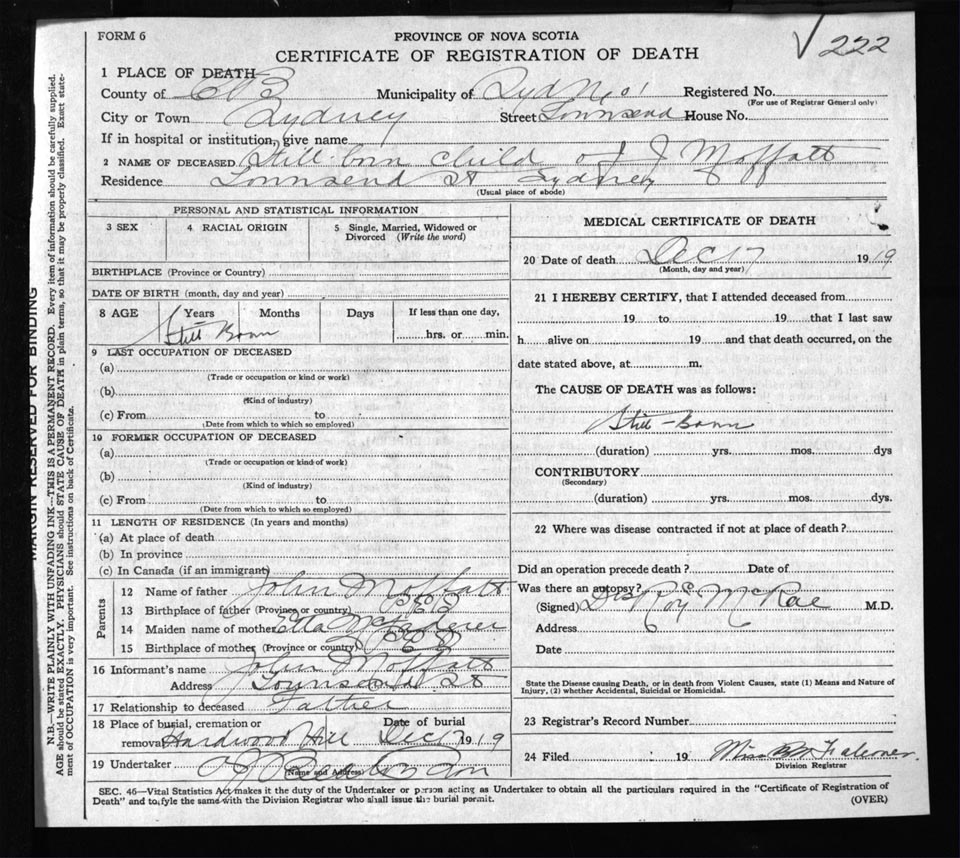 FORM 6
PROVINCE OF NOVA SCOTIA
CERTIFICATE OF REGISTRATION OF DEATH
√ 222
1 PLACE OF DEATH
County of C B Municipality of Registered No.
(For use of Registrar General only)
City or Town Sydney Street Townsend House No.
If in hospital or institution, give name
2 NAME OF DECEASED Still-born child of J Moffatt
Residence Townsend St Sydney
(Usual place of abode)
PERSONAL AND STATISTICAL INFORMATION
3 SEX 4 RACIAL ORIGIN 5 Single, Married, Widowed or
Divorced (Write the word)
BIRTHPLACE (Province or Country)
DATE OF BIRTH (month, day and year)
8 AGE Years Months Days If less than one day,
Still Born hrs. or min.
9 LAST OCCUPATION OF DECEASED
(a)
(Trade or occupation or kind or work)
(b)
(Kind of industry)
(c) From to
(Date from which to which so employed)
10 FORMER OCCUPATION OF DECEASED
(a)
(Trade or occupation or kind of work)
(b)
(Kind of industry)
(c) From to
(Date from which to which so employed)
11 LENGTH OF RESIDENCE (In years and months)
(a) At place of death
(b) In province
(c) In Canada (if an immigrant)
Parents
12 Name of father John Moffatt
13 Birthplace of father (Province or country)
14 Maiden name of mother Etta
15 Birthplace of mother (Province or country)
16 Informant's name John Moffatt
Address Townsend St
17 Relationship to deceased Father
18 Place of burial, cremation or Date of burial
removal Hardwood Hill Dec 17 1919
19 Undertaker Son
(Name and Address)
MEDICAL CERTIFICATE OF DEATH
20 Date of death Dec 17 1919
(Month, day and year)
21 I HEREBY CERTIFY, that I attended deceased from
19 to 19 that I last saw
h alive on 19 and that death occurred, on the
date stated above, at m.
The CAUSE OF DEATH was as follows:
Still-Born
(duration) yrs. mos. dys
CONTRIBUTORY
(Secondary)
(duration) yrs. mos. dys.
22 Where was disease contracted if not at place of death?
Did an operation precede death? Date of
Was there an autopsy?
(Signed) Roy McRae M.D.
Address
Date
State the Disease causing Death, or in death from Violent Causes, state (1) Means and Nature of
Injury, (2) whether Accidental, Suicidal or Homicidal.
23 Registrar's Record Number
24 Filed 19 Miss Falconer
Division Registrar
SEC. 46—Vital Statistics Act makes it the duty of the Undertaker or person acting as Undertaker to obtain all the particulars required in the "Certificate of Registration of
Death" and to fyle the same with the Division Registrar who shall issue the burial permit. (OVER)
MARGIN RESERVED FOR BINDING
N.B.—WRITE PLAINLY WITH UNFADING INK—THIS IS A PERMANENT RECORD. Every item of information should be carefully supplied.
AGE should be stated EXACTLY. PHYSICIANS should STATE CAUSE OF DEATH in plain terms, so that it may be properly classified. Exact state-
ment of OCCUPATION is very important. See instructions on back of Certificate.